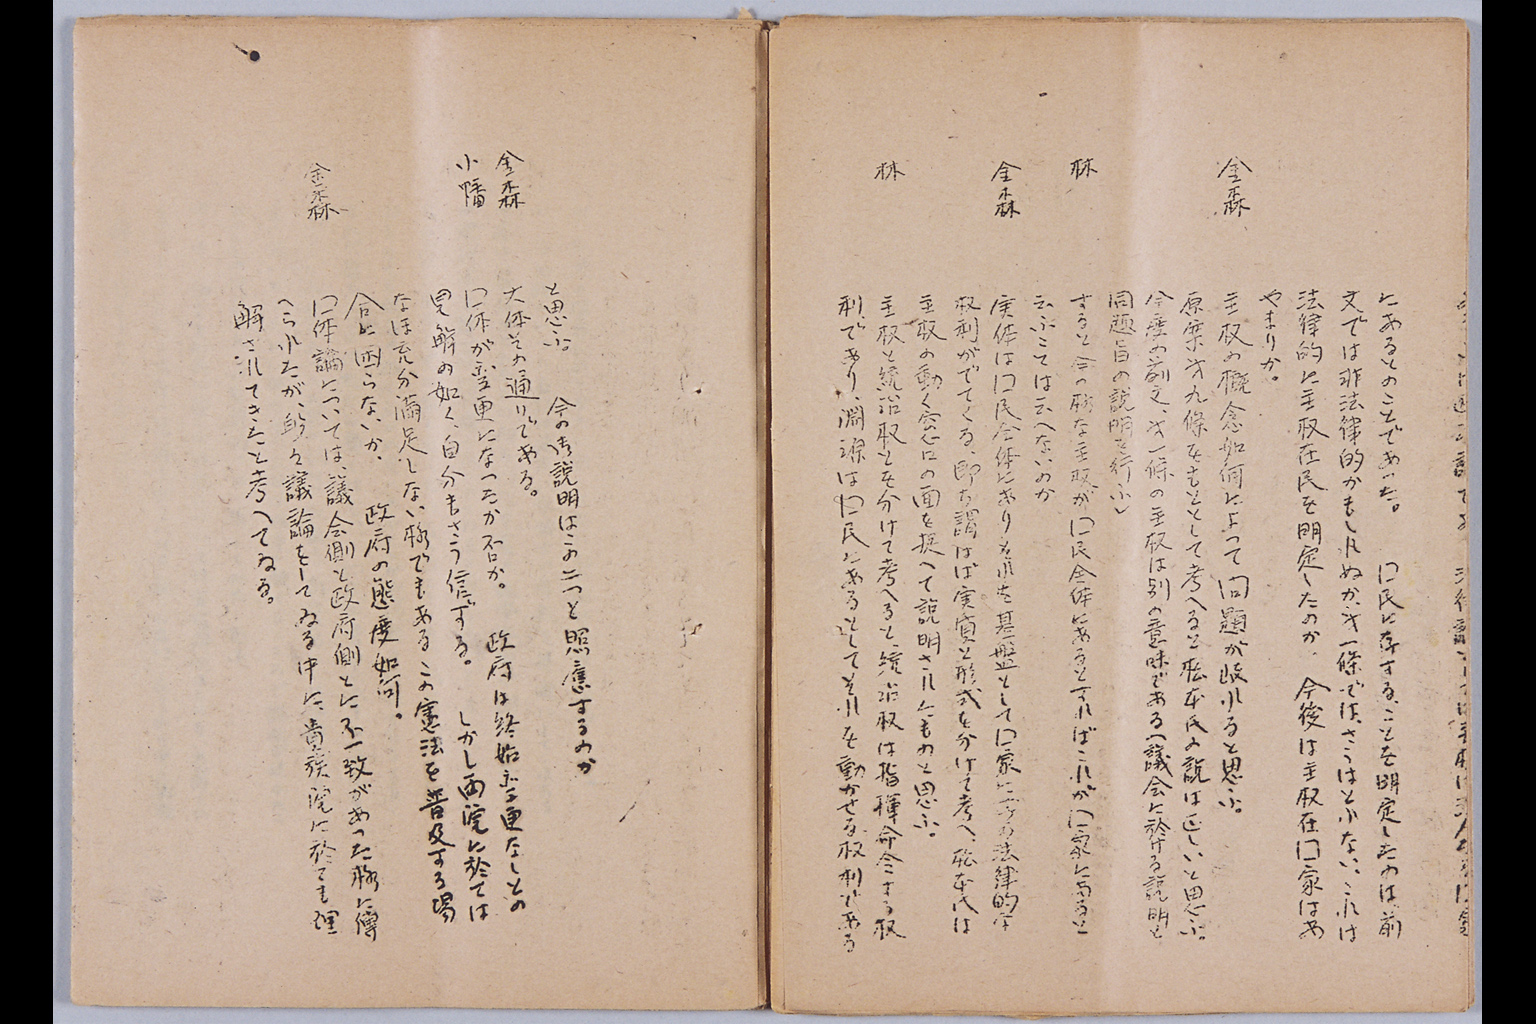 にあるとのことであつた。　口民に存することを明定したのは、前
文では非法律的かもしれぬが、才一條では、さうはとれない、これは
法律的に主权在民を明定したのか、　今後は主权在口家はあ
やまりか。
金森　主权の概念如何によつて問題が岐れると思ふ。
原案才九條をもととして考へると松本氏の說は正しいと思ふ。
今度の前文、才一條の主权は別の意味である(議会に於ける説明と
同趣旨の説明を行ふ)
林　すると今の様な主权が口民全体にあるとすればこれが口家にあると
云ふことは云へないのか
金森　実体は口民全体にありそれを基盤として口家に一つの法律的な
权利がでてくる、即ち謂はば実質と形式を分けて考へ、松本氏は
主权の動く空口の面を捉へて説明されたものと思ふ。
林　主权と統治权とを分けて考へると、統治权は指揮命令する权
利であり、淵源は口民にあるとしてそれを動かせる权利がある
と思ふ。　今の御説明はこの二つと照應するのか
金森　大体その通りである。
小幡　口体が変更になつたか否か。　政府は終始変更なしとの
見解の如く、自分もさう信ずる。　しかし両院に於ては
なほ充分満足しない様でもある　この憲法を普及する場
合に困らないか、　政府の態度如何。
金森　口体論については、議会側と政府側とに不一致があつた様に傳
へられたが、段々議論をしてゐる中に、貴族院に於ても理
解されてきたと考へてゐる。